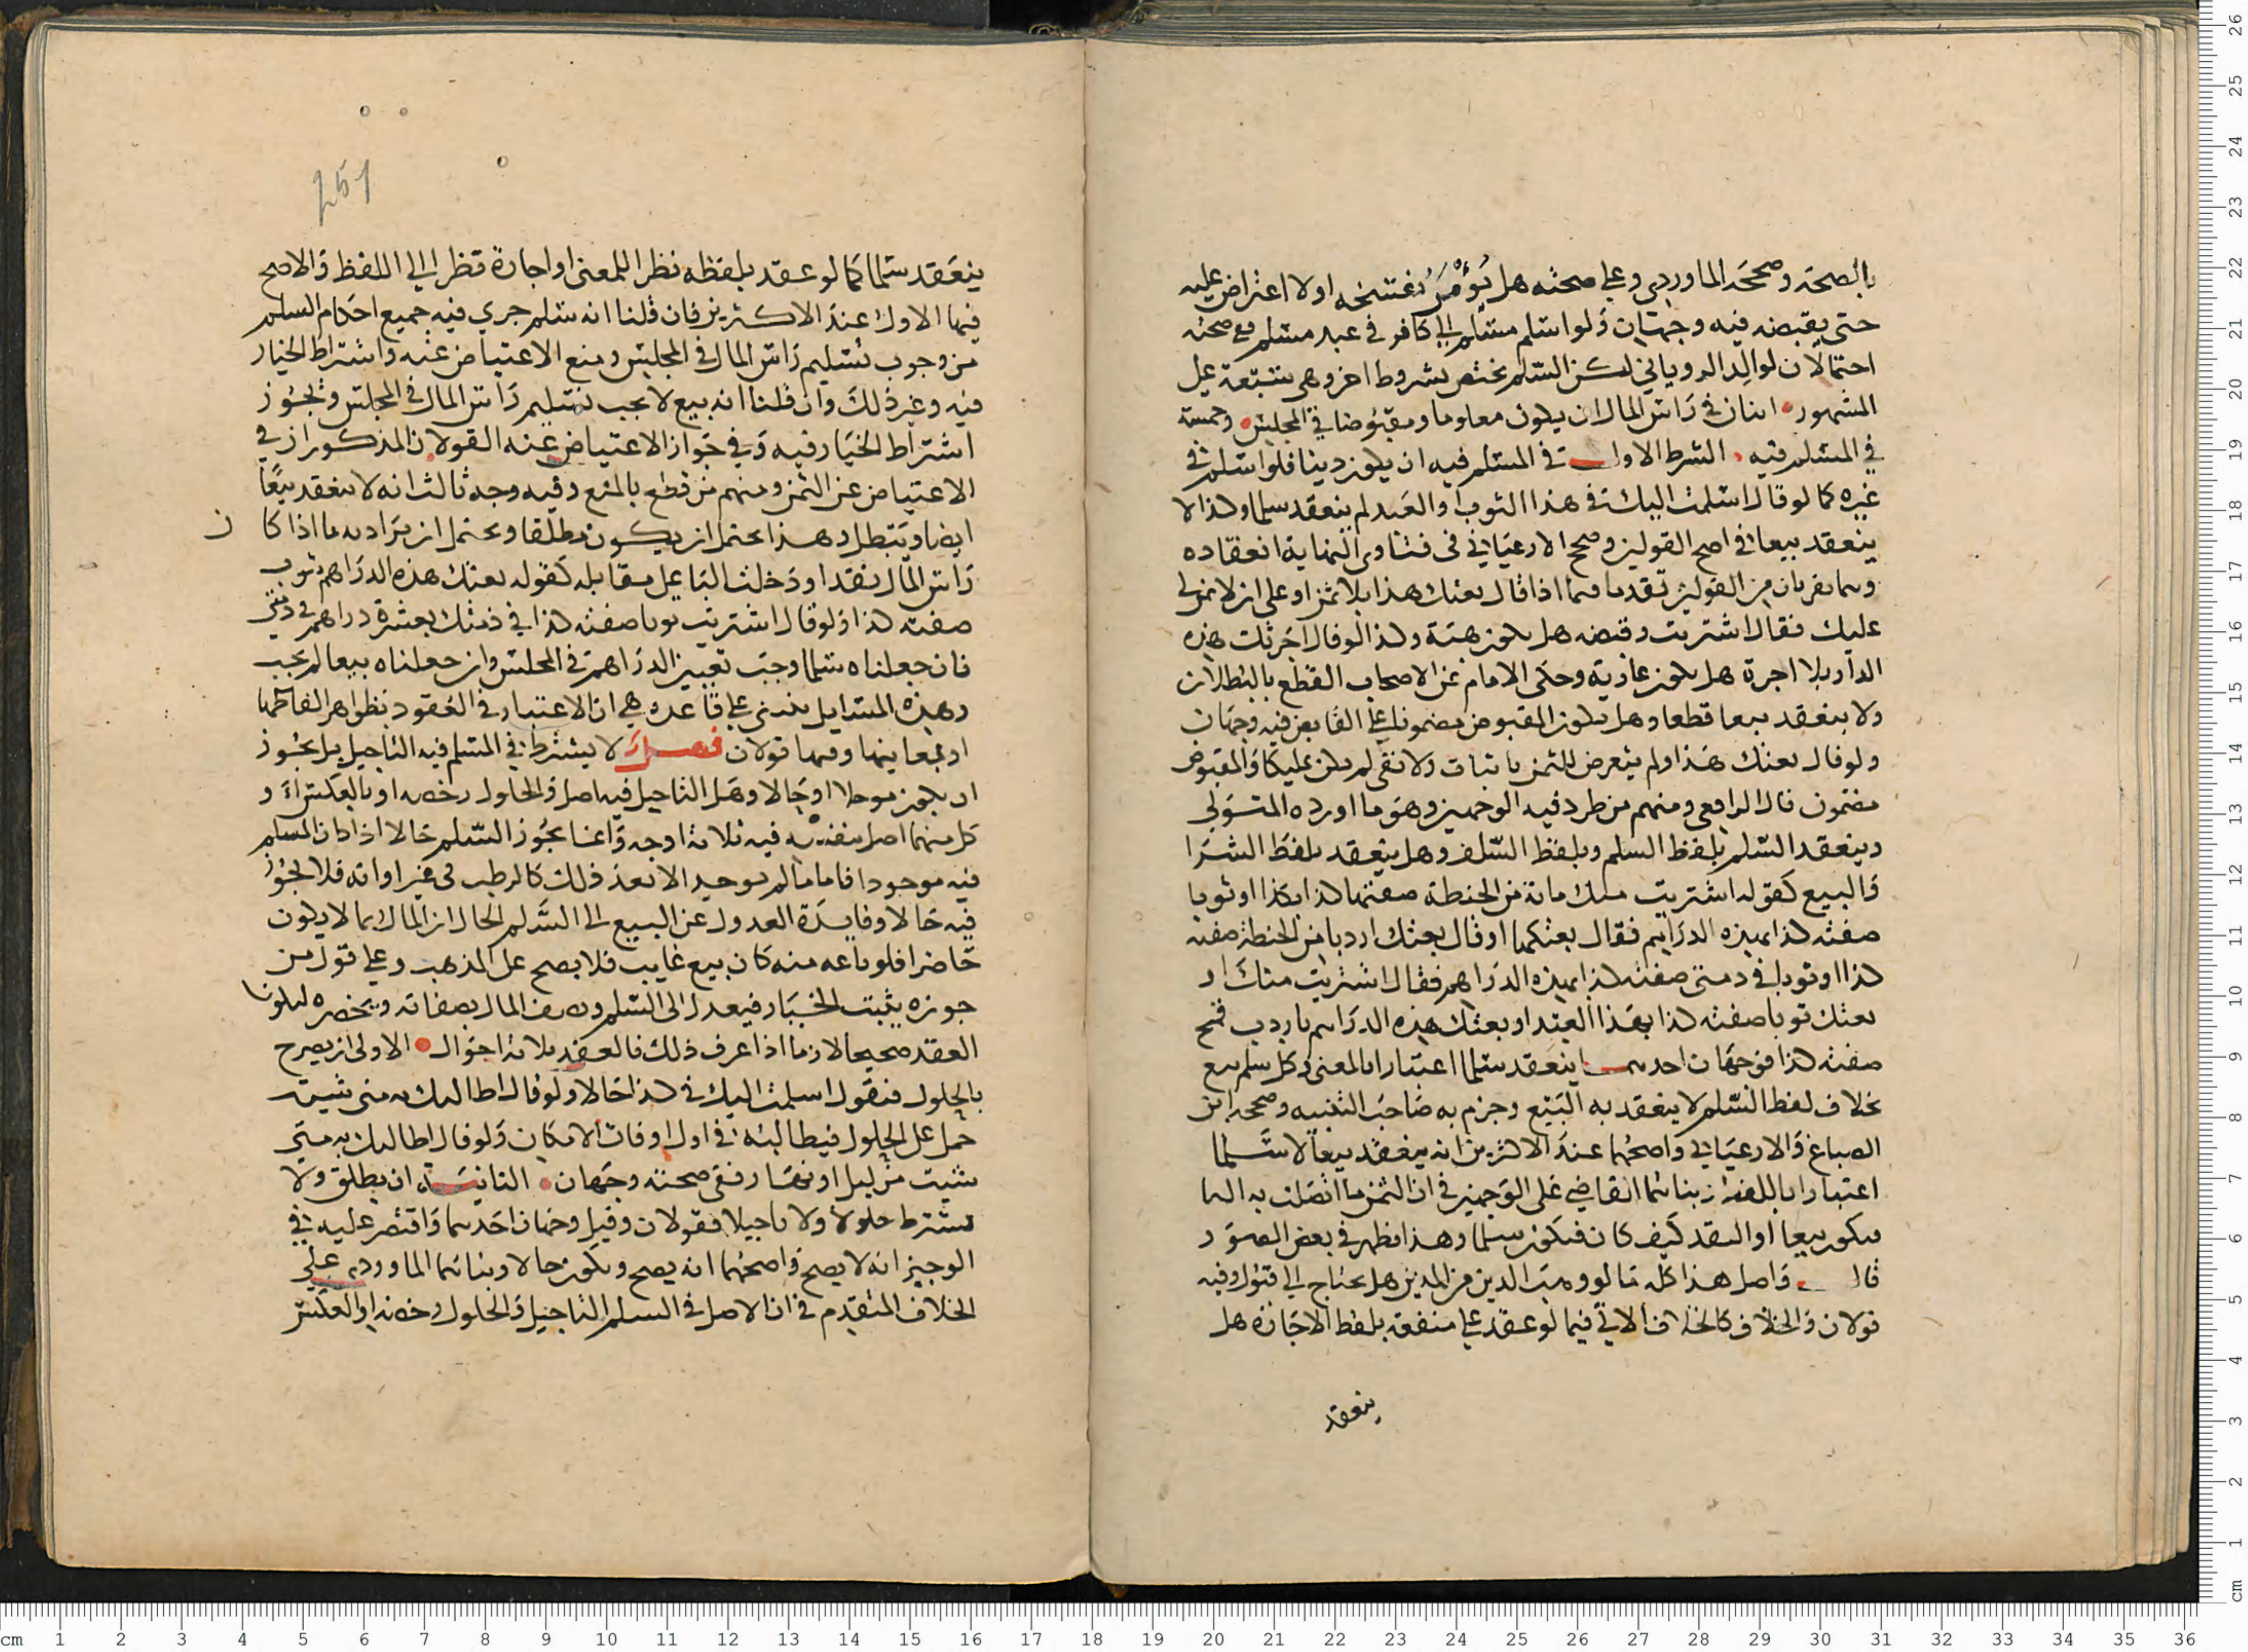 بالصحة وصححه الماوردي وعلى صحته هل يؤمر بفسخه اولا اعتراض عليه
حتى يقبضه فيه وجهان ولو اسلم مسلم الى كافر في عبد مسلم ففي صحته
احتمالان لوالد الروياني لكن السلم يختص بشروط اخر وهي سبعة على
المشهور اثنان في راس المال ان يكون معلوما ومقبوضا في المجلس وخمسة
في المسلم فيه الشرط الاول في المسلم فيه ان يكون دينا فلو اسلم في
غيره كما لو قال اسلمت اليك في هذا الثوب او العبد لم ينعقد سلما وكذا لا
ينعقد بيعا في اصح القولين وصحح الارغياني في فتاوى النهاية انعقاده
وهما يقربان من القولين تقدما فيما اذا قال بعتك هذا بلا ثمن او على ان لا ثمن لي
عليك فقال اشتريت وقبضه هل يكون هبة وكذا لو قال اجرتك هذه
الدار بلا اجرة هل يكون عارية وحكى الامام عن الاصحاب القطع بالبطلان
ولا ينعقد بيعا قطعا وهل يكون المقبوض مضمونا على القابض فيه وجهان
ولو قال بعتك هذا ولم يتعرض للثمن باثبات ولا نفي لم يكن تمليكا والمقبوض
مضمون قال الرافعي ومنهم من طرد فيه الوجهين وهو ما اورده المتولي
وينعقد السلم بلفظ السلم وبلفظ السلف وهل ينعقد بلفظ الشرا
والبيع كقوله اشتريت منك مائة من الحنطة صفتها كذا بكذا او ثوبا
صفته كذا بهذه الدراهم فقال بعتكها او قال بعتك اردبا من الحنطة صفته
كذا او ثوبا في ذمتي صفته كذا بهذه الدراهم فقال اشتريت منك او
بعتك ثوبا صفته كذا بهذا العبد او بعتك هذه الدراهم باردب قمح
صفته كذا فوجهان احدهما ينعقد سلما اعتبارا بالمعنى وكل سلم بيع
بخلاف لفظ السلم لا ينعقد به البيع وجزم به صاحب التنبيه وصححه ابن
الصباغ والارغياني واصحهما عند الاكثرين انه ينعقد بيعا لا سلما
اعتبارا باللفظ بناهما القاضي على الوجهين في ان الثمن ما اتصلت به البا
فيكون بيعا او النقد كيف كان فيكون سلما وهذا يظهر في بعض الصور
قال واصل هذا كله ما لو وهب الدين من المدين هل يحتاج الى قبول وفيه
قولان والخلاف كالخلاف الاتي فيما لو عقد على منفعة بلفظ الاجارة هل
ينعقد
251
ينعقد سلما كما لو عقد بلفظه نظرا للمعنى او اجارة نظرا الى اللفظ والاصح
فيها الاول عند الاكثرين فان قلنا انه سلم جرى فيه جميع احكام السلم
من وجوب تسليم راس المال في المجلس ومنع الاعتياض عنه واشتراط الخيار
فيه وغير ذلك وان قلنا انه بيع لا يجب تسليم راس المال في المجلس ويجوز
اشتراط الخيار فيه وفي جواز الاعتياض عنه القولان المذكوران في
الاعتياض عن الثمن ومنهم من قطع بالمنع وفيه وجه ثالث انه لا ينعقد بيعا
ايضا ويبطل وهذا يحتمل ان يكون مطلقا ويحتمل ان يراد به ما اذا كان
راس المال نقدا ودخلت البا على مقابله كقوله بعتك هذه الدراهم بثوب
صفته كذا ولو قال اشتريت ثوبا صفته كذا في ذمتك بعشرة دراهم في ذمتي
فان جعلناه سلما وجب تعيين الدراهم في المجلس وان جعلناه بيعا لم يجب
وهذه المسايل تنبني على قاعدة هي ان الاعتبار في العقود بظواهر الفاظها
او بمعانيها وفيها قولان فصل لا يشترط في المسلم فيه التاجيل بل يجوز
ان يكون موجلا او حالا وهل التاجيل فيه اصل والحلول رخصه او بالعكس او
كل منهما اصل بنفسه فيه ثلاثة اوجه وانما يجوز السلم حالا اذا كان المسلم
فيه موجودا فاما ما لم يوجد الا بعد ذلك كالرطب في غير اوانه فلا يجوز
فيه حالا وفايدة العدول عن البيع الى السلم الحال ان المال ربما لا يكون
حاضرا فلو باعه منه كان بيع غايب فلا يصح على المذهب وعلى قول من
جوزه يثبت الخيار فيعدل الى السلم ويصف المال بصفاته ويحضره ليكون
العقد صحيحا لازما اذا عرف ذلك فالعقد ثلاثة احوال الاولى ان يصرح
بالحلول فيقول اسلمت اليك في كذا حالا ولو قال اطالبك به متى شيت
حمل على الحلول فيطالبه في اول اوقات الامكان ولو قال اطالبك به متى
شيت من ليل او نهار ففي صحته وجهان الثانية ان يطلق ولا
يشترط حلولا ولا تاجيلا فقولان وقيل وجهان احدهما واقتصر عليه في
الوجيز انه لا يصح واصحهما انه يصح ويكون حالا وبناهما الماوردي على
الخلاف المتقدم في ان الاصل في السلم التاجيل والحلول رخصه او العكس